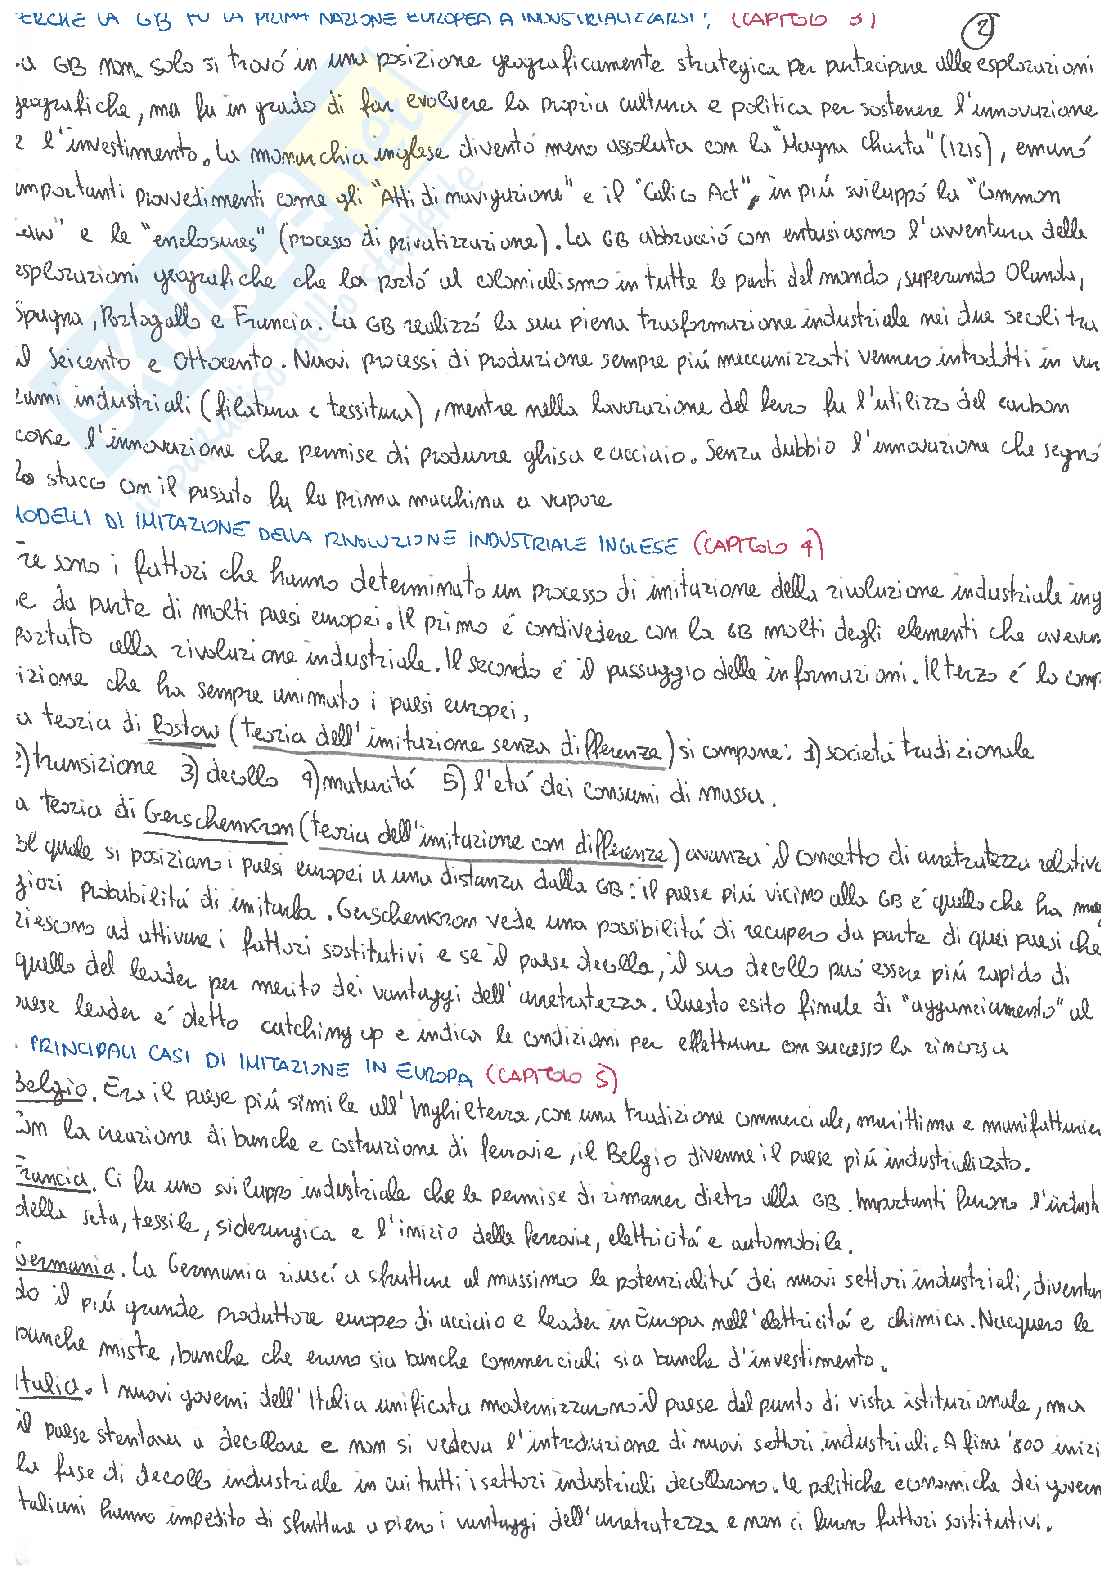 ERCHÉ LA GB FU LA PRIMA NAZIONE EUROPEA A INDUSTRIALIZZARSI? (CAPITOLO 3) 2
a GB non solo si trovò in una posizione geograficamente strategica per partecipare alle esplorazioni
geografiche, ma fu in grado di far evolvere la propria cultura e politica per sostenere l'innovazione
e l'investimento. La monarchia inglese diventò meno assoluta con la "Magna Charta" (1215), emanò
importanti provvedimenti come gli "Atti di navigazione" e il "Calico Act", in più sviluppò la "Common
Law" e le "enclosures" (processo di privatizzazione). La GB abbracciò con entusiasmo l'avventura delle
esplorazioni geografiche che la portò al colonialismo in tutte le parti del mondo, superando Olanda,
Spagna, Portogallo e Francia. La GB realizzò la sua piena trasformazione industriale nei due secoli tra
il Seicento e Ottocento. Nuovi processi di produzione sempre più meccanizzati vennero introdotti in var
rami industriali (filatura e tessitura), mentre nella lavorazione del ferro fu l'utilizzo del carbon
coke l'innovazione che permise di produrre ghisa e acciaio. Senza dubbio l'innovazione che segnò
lo stacco con il passato fu la prima macchina a vapore
MODELLI DI IMITAZIONE DELLA RIVOLUZIONE INDUSTRIALE INGLESE (CAPITOLO 4)
Tre sono i fattori che hanno determinato un processo di imitazione della rivoluzione industriale ing
e da parte di molti paesi europei. Il primo è condividere con la GB molti degli elementi che avevan
portato alla rivoluzione industriale. Il secondo è il passaggio delle informazioni. Il terzo è la comp
izione che ha sempre animato i paesi europei.
a teoria di Rostow (teoria dell'imitazione senza differenze) si compone: 1) società tradizionale
2) transizione 3) decollo 4) maturità 5) l'età dei consumi di massa.
a teoria di Gerschenkron (teoria dell'imitazione con differenze) avanza il concetto di arretratezza relativa
al quale si posiziano i paesi europei a una distanza dalla GB: il paese più vicino alla GB è quello che ha mag
giori probabilità di imitarla. Gerschenkron vede una possibilità di recupero da parte di quei paesi che
riescono ad attivare i fattori sostitutivi e se il paese decolla, il suo decollo può essere più rapido di
quello del leader per merito dei vantaggi dell'arretratezza. Questo esito finale di "agganciamento" al
paese leader è detto catching up e indica le condizioni per effettuare con successo la rincorsa
. PRINCIPALI CASI DI IMITAZIONE IN EUROPA (CAPITOLO 5)
Belgio. Era il paese più simile all'Inghilterra, con una tradizione commerciale, marittima e manifatturier
Con la creazione di banche e costruzione di ferrovie, il Belgio divenne il paese più industrializzato.
Francia. Ci fu uno sviluppo industriale che le permise di rimaner dietro alla GB. Importanti furono l'industr
della seta, tessile, siderurgica e l'inizio delle ferrovie, elettricità e automobile.
Germania. La Germania riuscì a sfruttare al massimo le potenzialità dei nuovi settori industriali, diventan
do il più grande produttore europeo di acciaio e leader in Europa nell'elettricità e chimica. Nacquero le
banche miste, banche che erano sia banche commerciali sia banche d'investimento.
Italia. I nuovi governi dell'Italia unificata modernizzarono il paese dal punto di vista istituzionale, ma
il paese stentava a decollare e non si vedeva l'introduzione di nuovi settori industriali. A fine '800 inizi
la fase di decollo industriale in cui tutti i settori industriali decollarono. Le politiche economiche dei govern
taliani hanno impedito di sfruttare a pieno i vantaggi dell'arretratezza e non ci furono fattori sostitutivi.